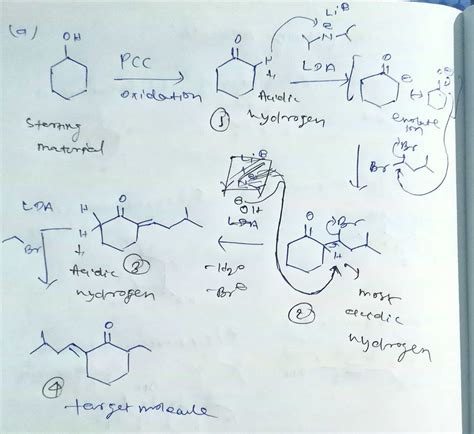 (a)
OH
PCC
oxidation
Starting
material
O
H
Acidic
hydrogen
①
Li⊕
⊖
N
LDA
O
⊖
↔
enolate
ion
Br
Br
O
H
②
most
acidic
hydrogen
⊖OH
LDA
-H2O
-Br⊖
O
H
H
③
Acidic
hydrogen
LDA
Br
O
④
target molecule